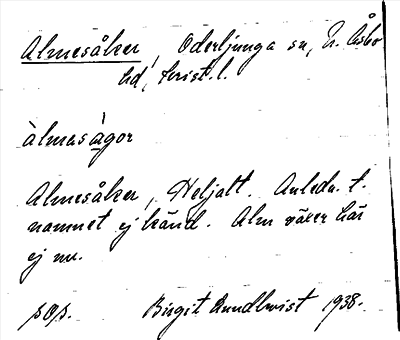 Almesåker, Oderljunga sn, N. Åsbo
hd, Krist. l.
àlmasàgor
Almesåker, Heljatt. Anledn. t.
namnet ej känd. Alm växer här
ej nu.
sOs. Birgit Lundkvist 1938.